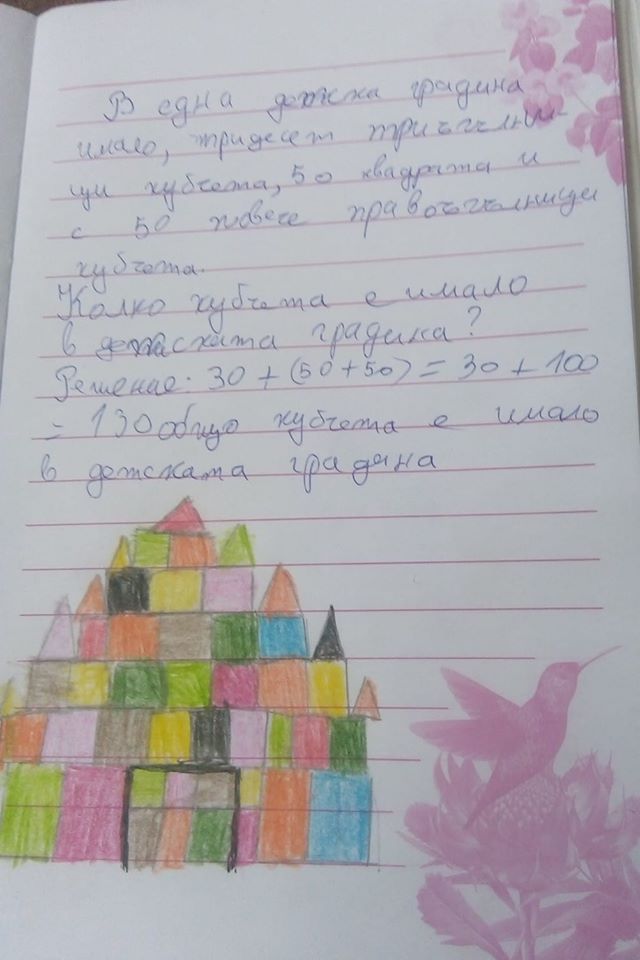 В една детска градина
имало, тридесет триъгълни-
ци кубчета, 50 квадрата и
с 50 повече правоъгълници
кубчета.
Колко кубчета е имало
в детската градина?
Решение: 30 + (50+50) = 30 + 100
= 130 общо кубчета е имало
в детската градина